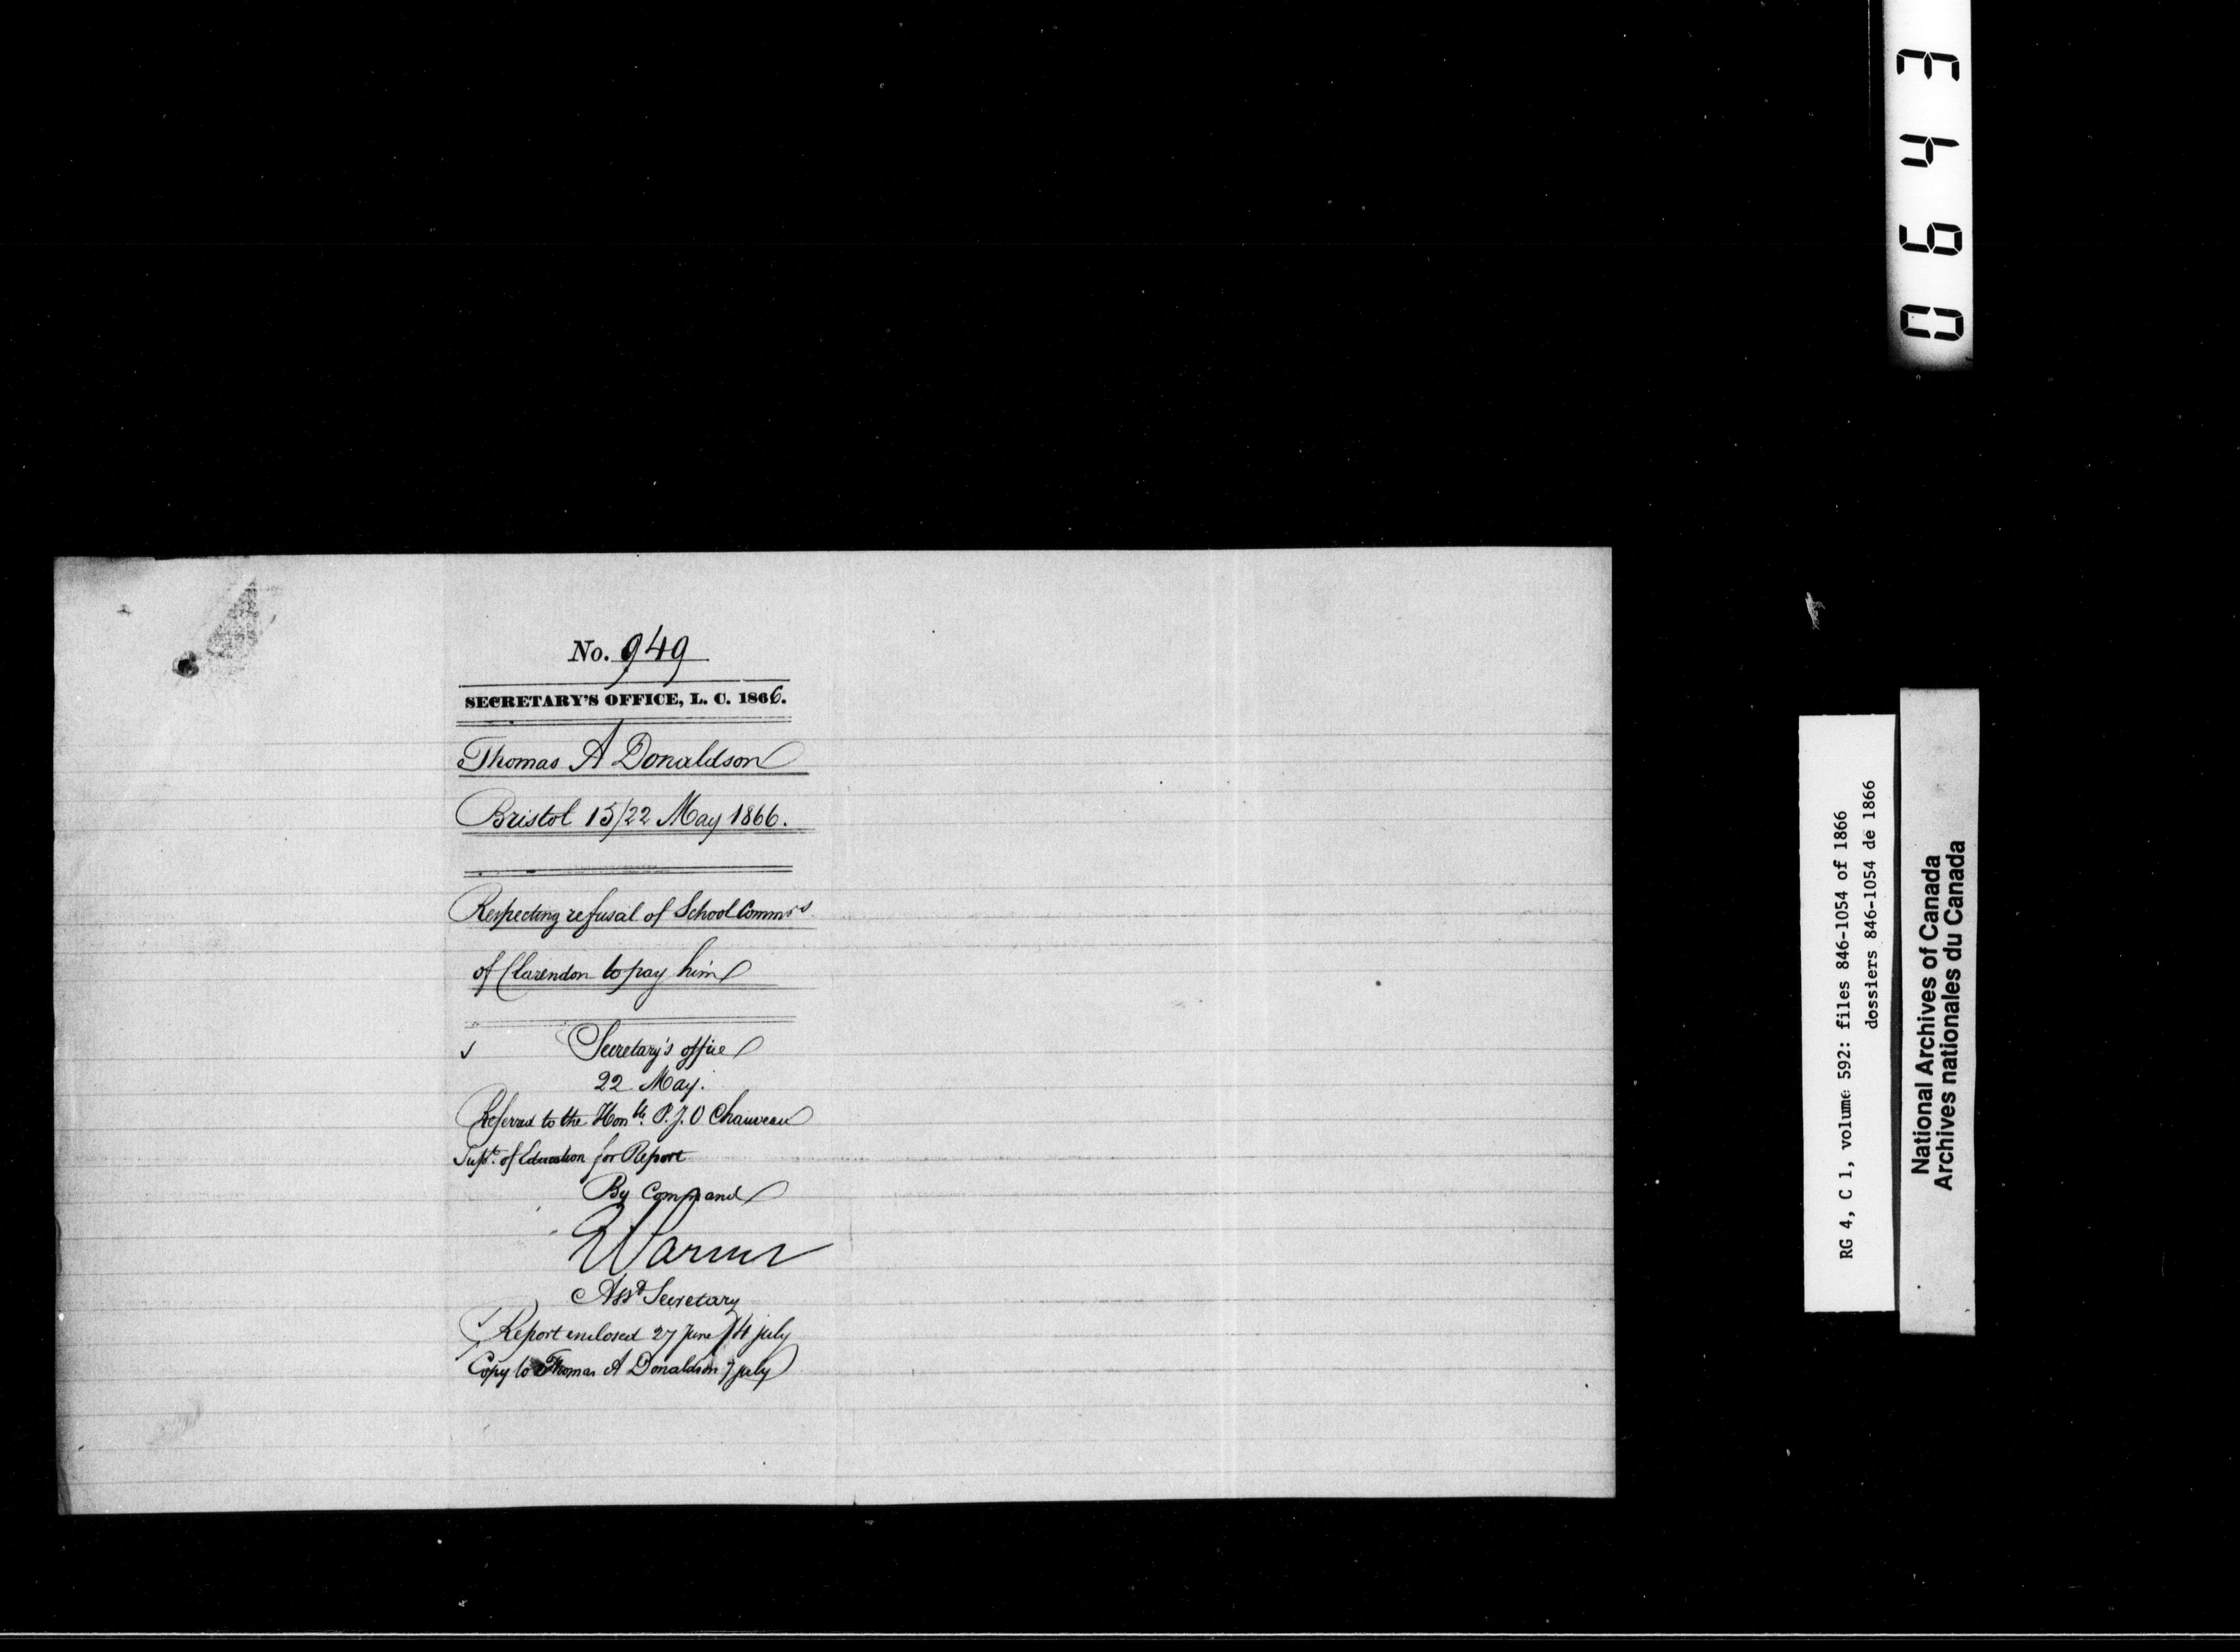 No. 949
SECRETARY'S OFFICE, L. C. 1866.
Thomas A Donaldson
Bristol 15/22 May 1866.
Respecting refusal of School Commrs
of Clarendon to pay him
Secretary's office
22 May.
Referred to the Honble. P. J. O Chauveau
Supt. of Education for Report
By Command
Asst Secretary
Report enclosed 27 June / 4 july
Copy to Thomas A Donaldson 7 july
0643
RG 4, C 1, volume 592: files 846-1054 of 1866
dossiers 846-1054 de 1866
National Archives of Canada
Archives nationales du Canada